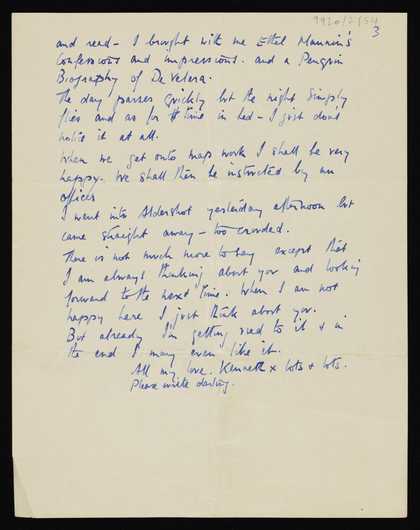 9920/7/54
3
and read - I brought with me Ethel Mannin's
Confessions and impressions. and a Penguin
Biography of De Valera.
The day passes quickly but the night simply
flies and as for time in bed - I just dont
notice it at all.
When we get onto map work I shall be very
happy. We shall then be instructed by an
officer
I went into Aldershot yesterday afternoon but
came straight away - too crowded.
There is not much more to say except that
I am always thinking about you and looking
forward to the next time. When I am not
happy here I just think about you.
But already I'm getting used to it & in
the end I may even like it.
All my love. Kenneth x lots & lots.
Please write darling.